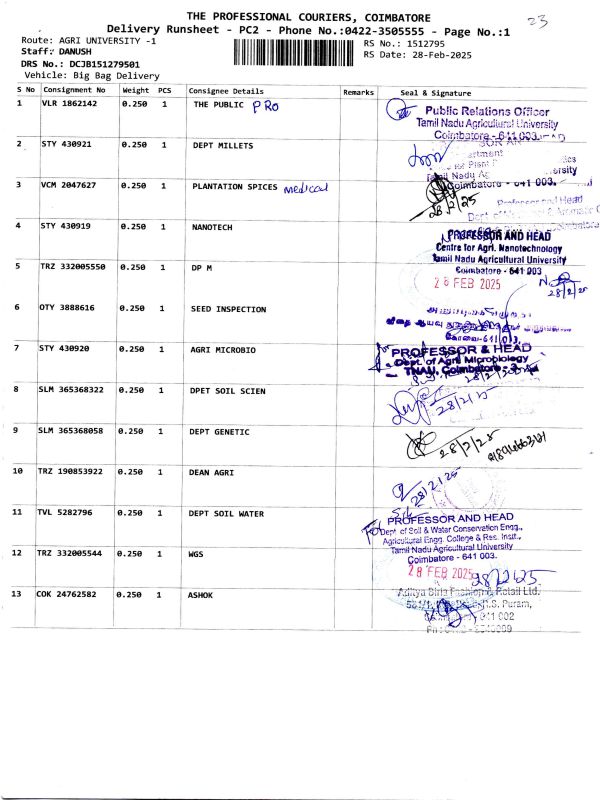 THE PROFESSIONAL COURIERS, COIMBATORE
23
Delivery Runsheet - PC2 - Phone No.:0422-3505555 - Page No.:1
Route: AGRI UNIVERSITY -1
RS No.: 1512795
Staff: DANUSH
RS Date: 28-Feb-2025
DRS No.: DCJB151279501
Vehicle: Big Bag Delivery
S No Consignment No Weight PCS Consignee Details Remarks Seal & Signature
1 VLR 1862142 0.250 1 THE PUBLIC PRO
Public Relations Officer
Tamil Nadu Agricultural University
Coimbatore - 641 003.
2 STY 430921 0.250 1 DEPT MILLETS
3 VCM 2047627 0.250 1 PLANTATION SPICES medical
Coimbatore - 641 003.
28/2/25
Professor and Head
4 STY 430919 0.250 1 NANOTECH
PROFESSOR AND HEAD
Centre for Agri. Nanotechnology
Tamil Nadu Agricultural University
Coimbatore - 641 003
5 TRZ 332005550 0.250 1 DP M
28 FEB 2025
28/2/25
6 OTY 3888616 0.250 1 SEED INSPECTION
7 STY 430920 0.250 1 AGRI MICROBIO
PROFESSOR & HEAD
Dept. of Agri Microbiology
TNAU, Coimbatore - 3
8 SLM 365368322 0.250 1 DPET SOIL SCIEN
28/2/25
9 SLM 365368058 0.250 1 DEPT GENETIC
28/2/25
10 TRZ 190853922 0.250 1 DEAN AGRI
28/2/25
11 TVL 5282796 0.250 1 DEPT SOIL WATER
PROFESSOR AND HEAD
Dept of Soil & Water Conservation Engg.,
Agricultural Engg. College & Res. Instt.,
Tamil Nadu Agricultural University
Coimbatore - 641 003.
12 TRZ 332005544 0.250 1 WGS
28 FEB 2025
28/2/25
13 COK 24762582 0.250 1 ASHOK
Aditya Birla Fashion & Retail Ltd.
R.S. Puram,